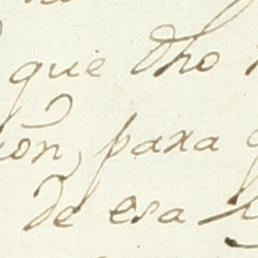 que dho
on, para
de esa